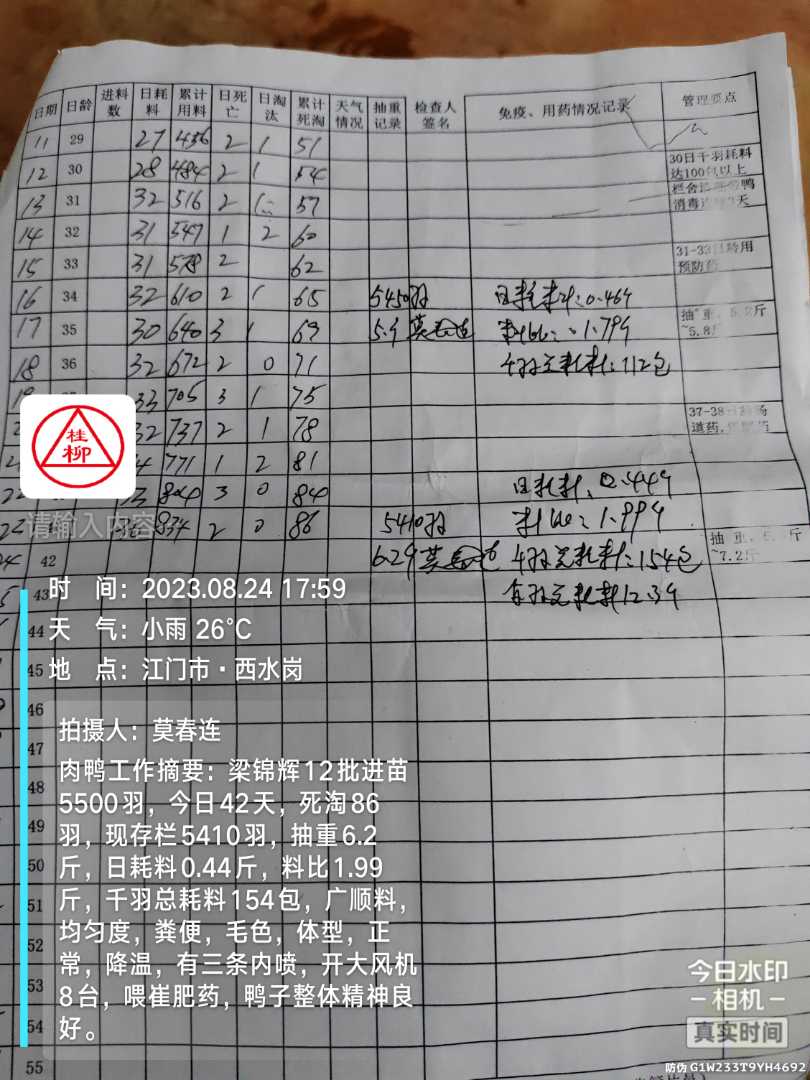 日期 日龄 进料数 日耗料 累计用料 日死亡 日淘汰 累计死淘 天气情况 抽重记录 检查人签名 免疫、用药情况记录 管理要点
11 29 27 456 2 1 51
12 30 28 484 2 1 54 30日千羽耗料达100包以上
13 31 32 516 2 1 57 消毒
14 32 31 547 1 2 60
15 33 31 578 2 62 31-33日龄用预防药
16 34 32 610 2 1 65 5450羽 日耗料:0.46斤
17 35 30 640 3 1 69 5.9 莫春连 料比:1.79斤 抽重,5.2斤~5.8斤
18 36 32 672 2 0 71 千羽总耗料:112包
33 705 3 1 75
32 737 2 1 78 37-38日 肠道药,
771 1 2 81
22 804 3 0 84 日耗料:0.44斤
834 2 0 86 5410羽 料比:1.99斤
24 42 6.2斤 莫春连 千羽总耗料:154包 抽重, ~7.2斤
43 每羽总耗料12.3斤
44
45
46
47
48
49
50
51
52
53
54
55
桂柳
请输入内容
时 间:2023.08.24 17:59
天 气:小雨 26℃
地 点:江门市·西水岗
拍摄人:莫春连
肉鸭工作摘要:梁锦辉12批进苗
5500羽,今日42天,死淘86
羽,现存栏5410羽,抽重6.2
斤,日耗料0.44斤,料比1.99
斤,千羽总耗料154包,广顺料,
均匀度,粪便,毛色,体型,正
常,降温,有三条内喷,开大风机
8台,喂崔肥药,鸭子整体精神良
好。
今日水印
相机
真实时间
防伪 G1W233T9YH4692